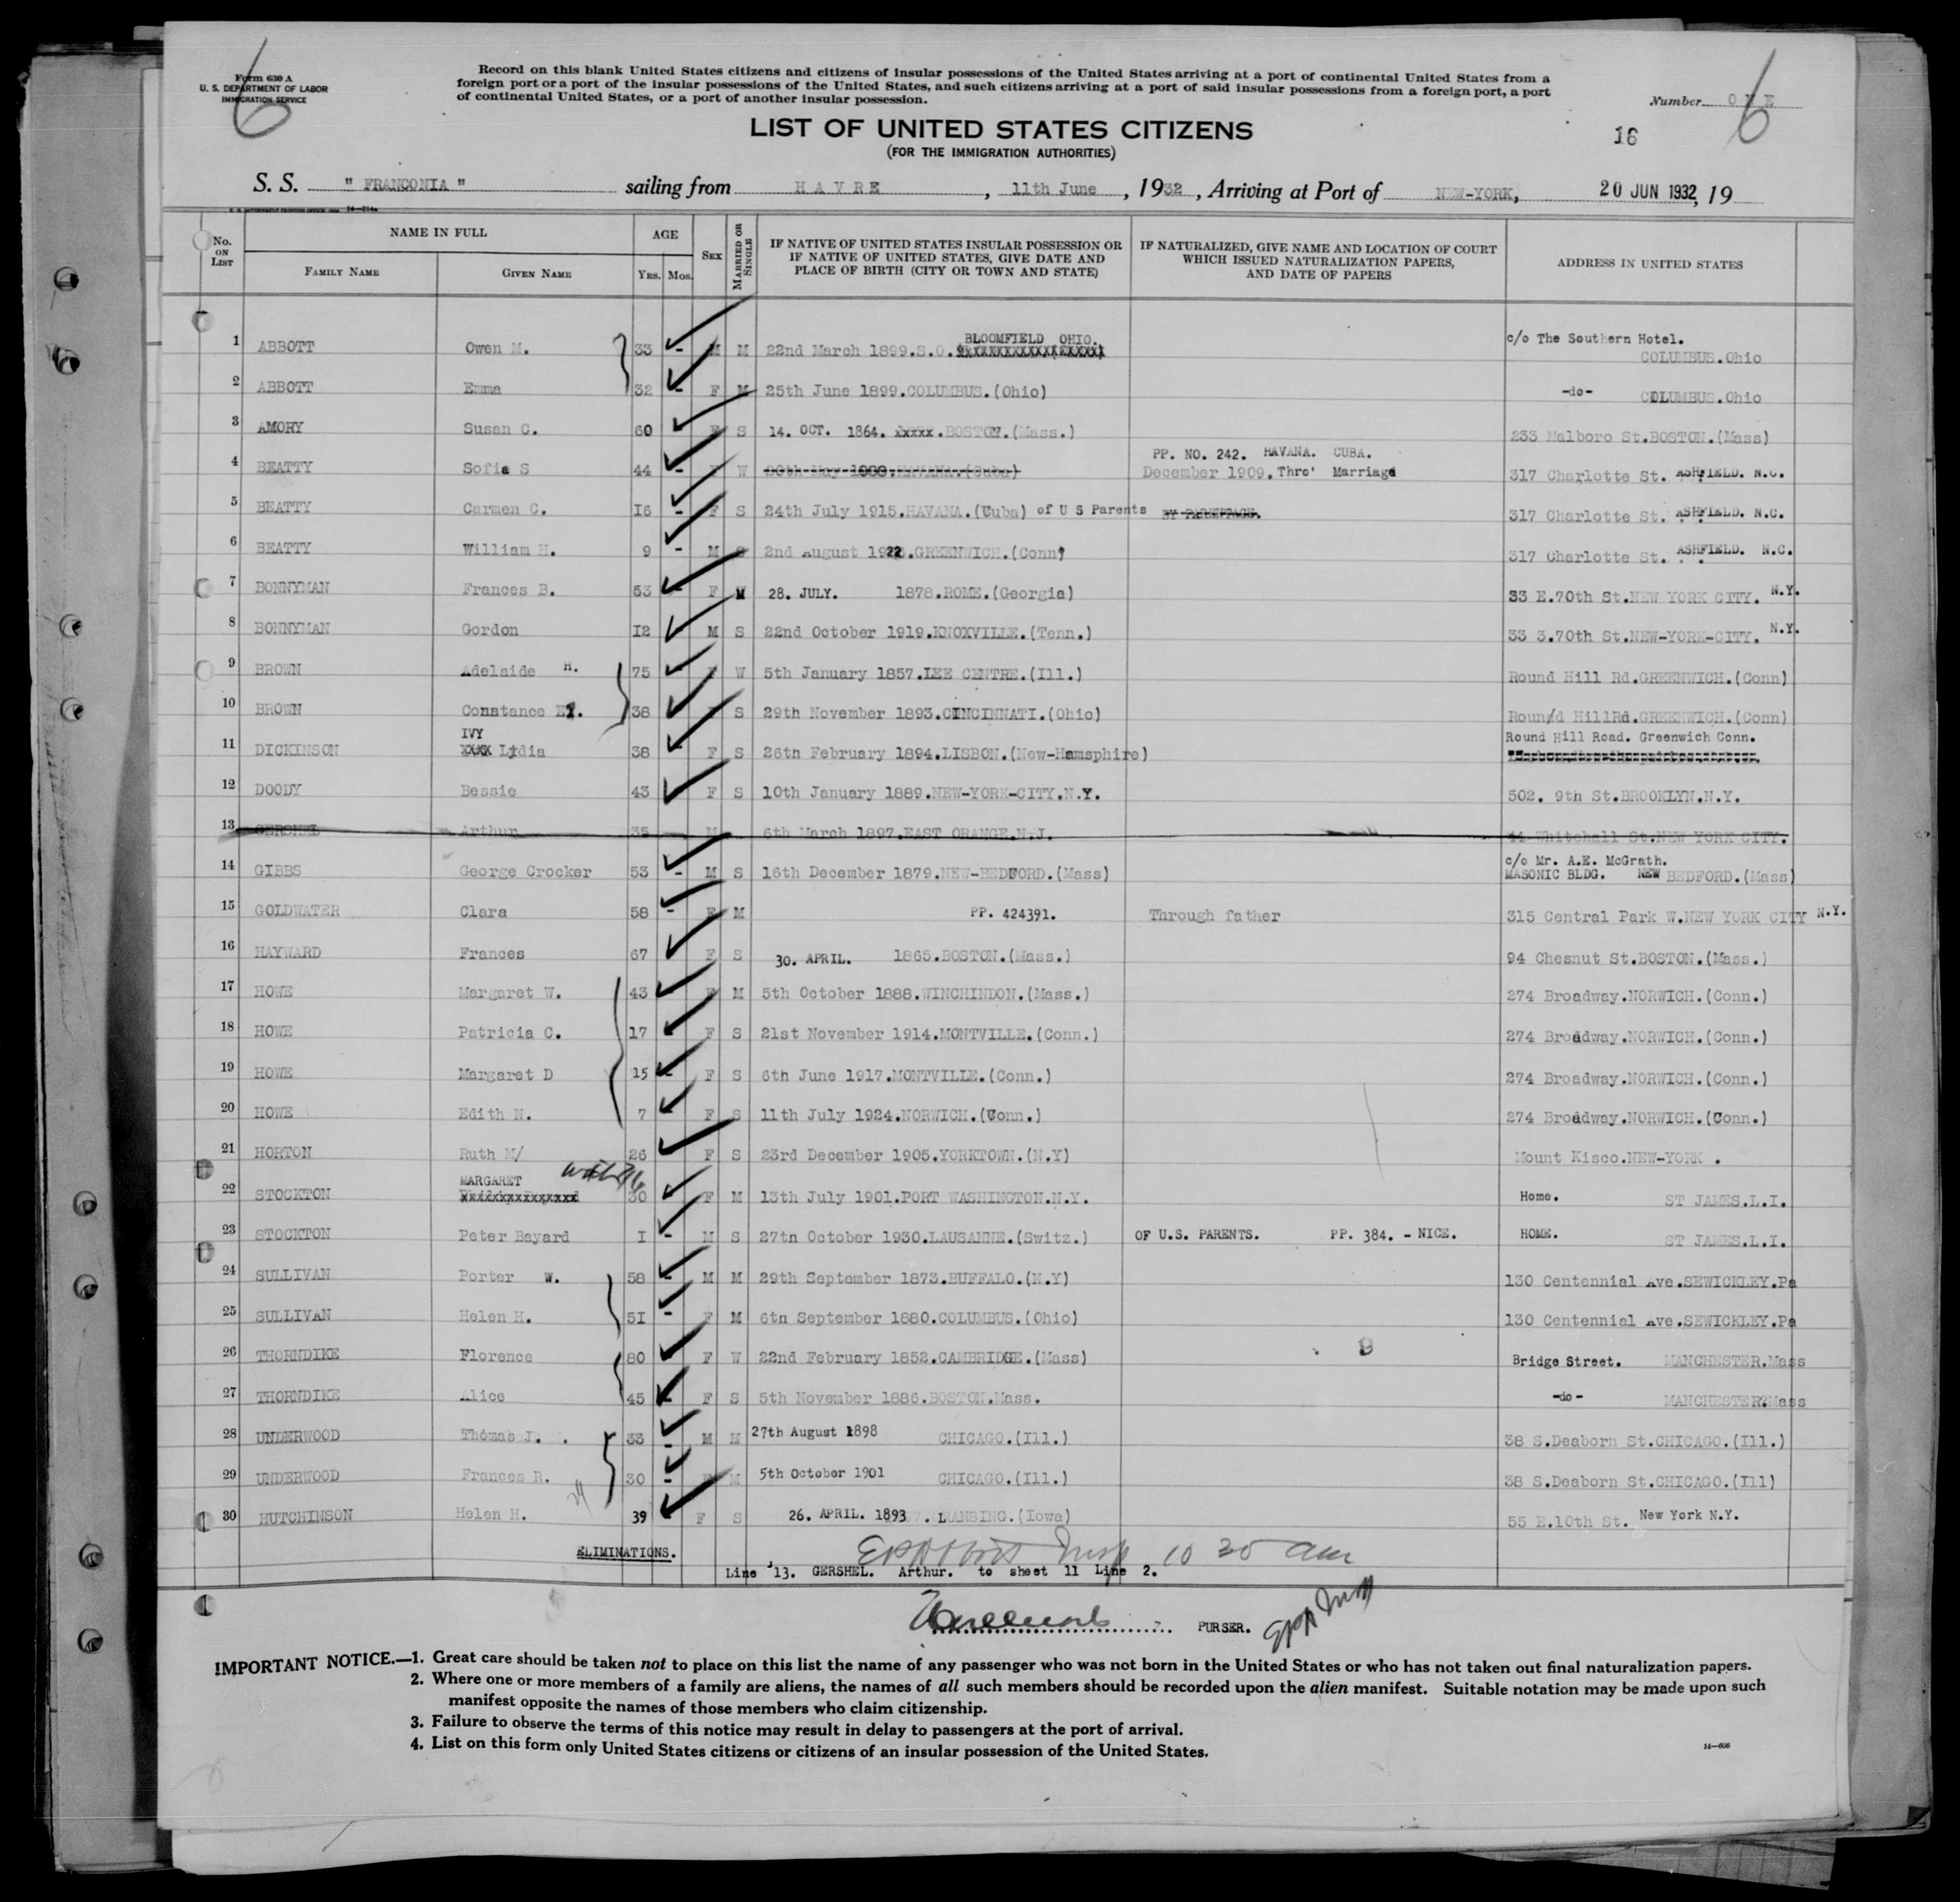 Form 630 A
U. S. DEPARTMENT OF LABOR
IMMIGRATION SERVICE
6
Record on this blank United States citizens and citizens of insular possessions of the United States arriving at a port of continental United States from a
foreign port or a port of the insular possessions of the United States, and such citizens arriving at a port of said insular possessions from a foreign port, a port
of continental United States, or a port of another insular possession.
Number ONE
6
16
LIST OF UNITED STATES CITIZENS
(FOR THE IMMIGRATION AUTHORITIES)
S. S. " FRANCONIA " sailing from HAVRE, 11th June, 1932, Arriving at Port of NEW-YORK, 20 JUN 1932, 19
No. ON LIST
NAME IN FULL
FAMILY NAME GIVEN NAME
AGE
YRS. MOS.
SEX
MARRIED OR SINGLE
IF NATIVE OF UNITED STATES INSULAR POSSESSION OR
IF NATIVE OF UNITED STATES, GIVE DATE AND
PLACE OF BIRTH (CITY OR TOWN AND STATE)
IF NATURALIZED, GIVE NAME AND LOCATION OF COURT
WHICH ISSUED NATURALIZATION PAPERS,
AND DATE OF PAPERS
ADDRESS IN UNITED STATES
BLOOMFIELD OHIO. c/o The Southern Hotel.
1 ABBOTT Owen M. 33 - M M 22nd March 1899.S.O. COLUMBUS.Ohio
2 ABBOTT Emma 32 - F M 25th June 1899.COLUMBUS.(Ohio) -do- COLUMBUS.Ohio
3 AMORY Susan C. 60 F S 14. OCT. 1864. xxxxx.BOSTON.(Mass.) 233 Malboro St.BOSTON.(Mass)
PP. NO. 242. HAVANA. CUBA.
4 BEATTY Sofia S 44 - F W HAVANA.(Cuba) December 1909. Thro' Marriage 317 Charlotte St. ASHFIELD. N.C.
5 BEATTY Carmen C. I6 F S 24th July 1915.HAVANA.(Cuba) of U S Parents BY PARENTAGE. 317 Charlotte St. ASHFIELD. N.C.
6 BEATTY William H. 9 - M S 2nd August 1922.GREENWICH.(Conn) 317 Charlotte St. ASHFIELD. N.C.
7 BONNYMAN Frances B. 53 F M 28. JULY. 1878.ROME.(Georgia) 33 E.70th St.NEW YORK CITY. N.Y.
8 BONNYMAN Gordon I2 M S 22nd October 1919.KNOXVILLE.(Tenn.) 33 3.70th St.NEW-YORK-CITY. N.Y.
9 BROWN Adelaide H. 75 F W 5th January 1857.LEE CENTRE.(Ill.) Round Hill Rd.GREENWICH.(Conn)
10 BROWN Constance 38 F S 29th November 1893.CINCINNATI.(Ohio) Roun/d HillRd.GREENWICH.(Conn)
IVY Round Hill Road. Greenwich Conn.
11 DICKINSON XXXX Lydia 38 F S 26th February 1894.LISBON.(New-Hamsphire)
12 DOODY Bessie 43 F S 10th January 1889.NEW-YORK-CITY.N.Y. 502. 9th St.BROOKLYN.N.Y.
13 GERSHEL Arthur 35 M 6th March 1897.EAST ORANGE.N.J. 44 Whitehall St.NEW YORK CITY.
c/o Mr. A.E. McGrath.
14 GIBBS George Crocker 53 - M S 16th December 1879.NEW-BEDFORD.(Mass) MASONIC BLDG. NEW BEDFORD.(Mass)
15 GOLDWATER Clara 58 - F M PP. 424391. Through father 315 Central Park W.NEW YORK CITY N.Y.
16 HAYWARD Frances 67 F S 30. APRIL. 1865.BOSTON.(Mass.) 94 Chesnut St.BOSTON.(Mass.)
17 HOWE Margaret W. 43 F M 5th October 1888.WINCHINDON.(Mass.) 274 Broadway.NORWICH.(Conn.)
18 HOWE Patricia C. 17 F S 21st November 1914.MONTVILLE.(Conn.) 274 Broadway.NORWICH.(Conn.)
19 HOWE Margaret D 15 F S 6th June 1917.MONTVILLE.(Conn.) 274 Broadway.NORWICH.(Conn.)
20 HOWE Edith N. 7 F S 11th July 1924.NORWICH.(Conn.) 274 Broadway.NORWICH.(Conn.)
21 HORTON Ruth M/ 26 F S 23rd December 1905.YORKTOWN.(N.Y) Mount Kisco.NEW-YORK .
MARGARET
22 STOCKTON 30 F M 13th July 1901.PORT WASHINGTON.N.Y. Home. ST JAMES.L.I.
23 STOCKTON Peter Bayard I - M S 27tn October 1930.LAUSANNE.(Switz.) OF U.S. PARENTS. PP. 384. - NICE. HOME. ST JAMES.L.I.
24 SULLIVAN Porter W. 58 - M M 29th September 1873.BUFFALO.(N.Y) 130 Centennial Ave.SEWICKLEY.Pa
25 SULLIVAN Helen H. 5I - F M 6tn September 1880.COLUMBUS.(Ohio) 130 Centennial Ave.SEWICKLEY.Pa
26 THORNDIKE Florence 80 F W 22nd February 1852.CAMBRIDGE.(Mass) Bridge Street. MANCHESTER.Mass
27 THORNDIKE Alice 45 - F S 5th November 1886.BOSTON.Mass. -do- MANCHESTER.Mass
28 UNDERWOOD Thomas J. 33 - M M 27th August 1898 CHICAGO.(Ill.) 38 S.Deaborn St.CHICAGO.(Ill.)
29 UNDERWOOD Frances R. 30 - F M 5th October 1901 CHICAGO.(Ill.) 38 S.Deaborn St.CHICAGO.(Ill)
30 HUTCHINSON Helen H. 39 F S 26. APRIL. 1893. LANSING.(Iowa) 55 E.10th St. New York N.Y.
ELIMINATIONS. 10 30 am
Line 13. GERSHEL. Arthur. to sheet 11 Line 2.
PURSER.
IMPORTANT NOTICE.—1. Great care should be taken not to place on this list the name of any passenger who was not born in the United States or who has not taken out final naturalization papers.
2. Where one or more members of a family are aliens, the names of all such members should be recorded upon the alien manifest. Suitable notation may be made upon such
manifest opposite the names of those members who claim citizenship.
3. Failure to observe the terms of this notice may result in delay to passengers at the port of arrival.
4. List on this form only United States citizens or citizens of an insular possession of the United States.
14—606